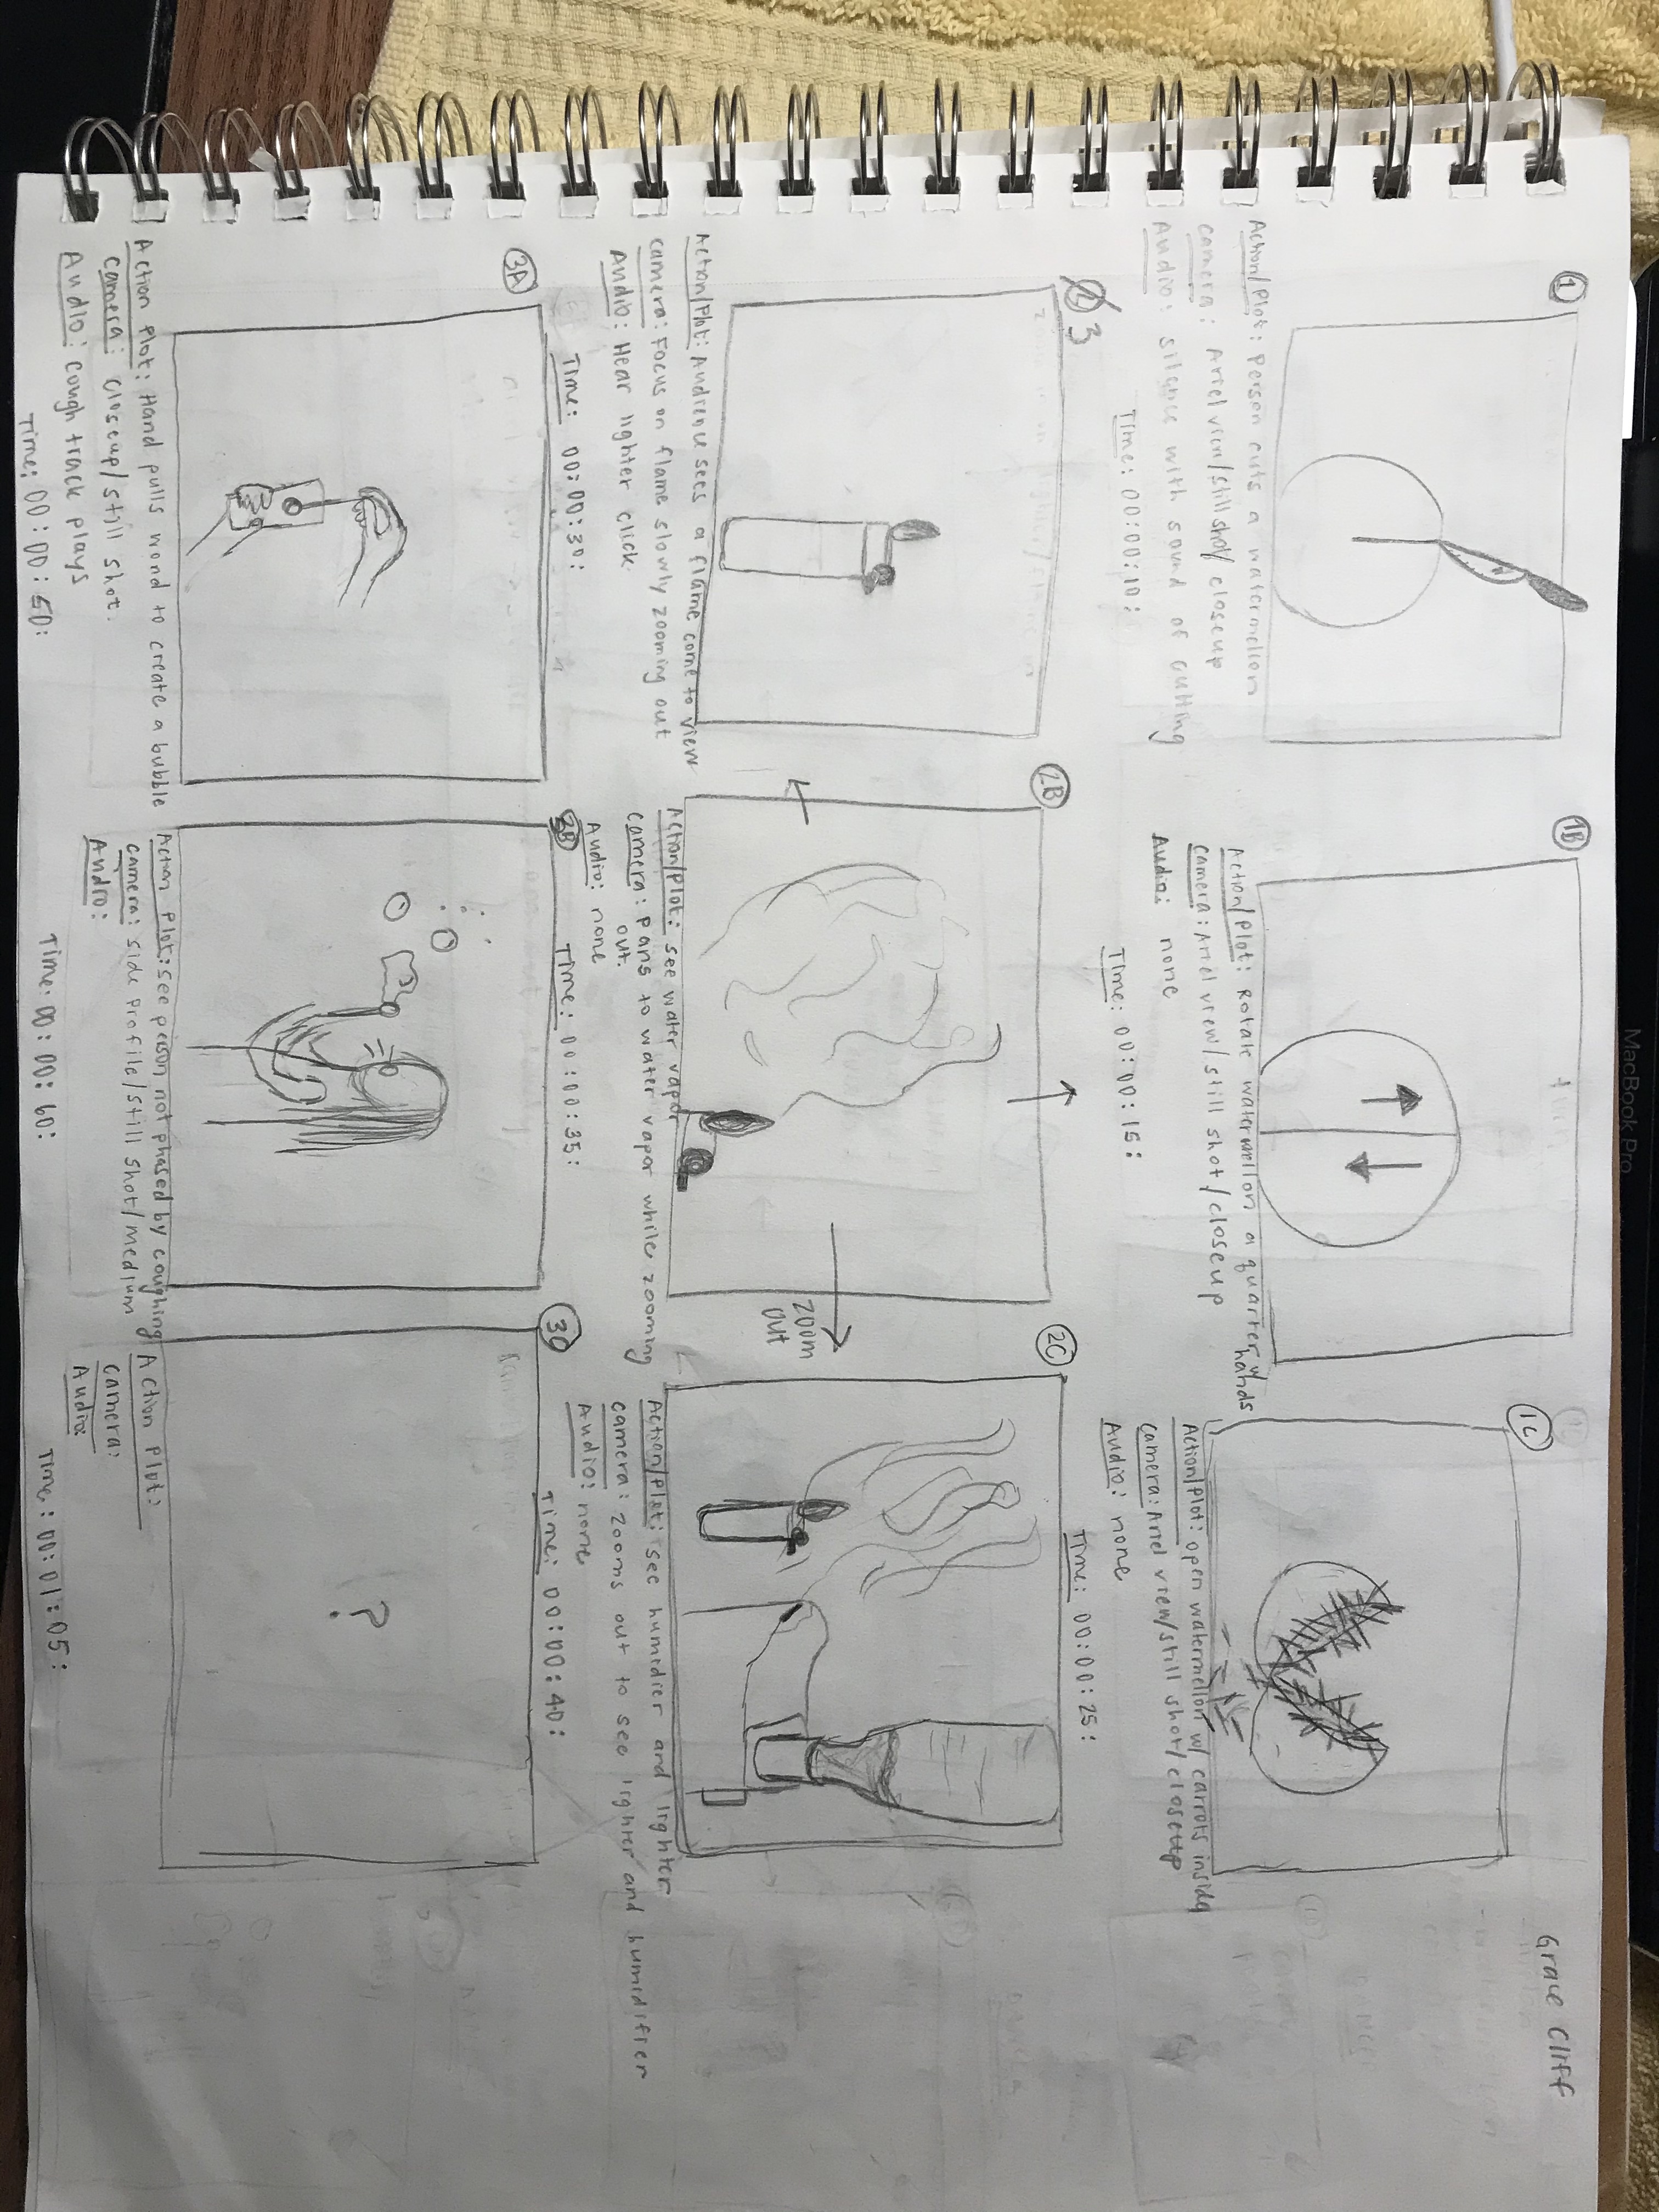 Grace Cliff
1
Action/Plot: Person cuts a watermellon
camera: Ariel view/still shot/closeup
Audio: silence with sound of cutting
Time: 00:00:10:
1B
Action/Plot: Rotate watermellon a quarter w/
hands
camera: Ariel view/still shot/closeup
Audio: none
Time: 00:00:15:
1C
Action/Plot: open watermellon w/ carrots inside
camera: Ariel view/still shot/closeup
Audio: none
Time: 00:00:25:
3
Action/Plot: Audience sees a flame come to view
camera: Focus on flame slowly zooming out
Audio: Hear lighter click
Time: 00:00:30:
2B
zoom
out
Action/Plot: see water vapor
camera: pans to water vapor while zooming
out.
Audio: none
Time: 00:00:35:
2C
Action/Plot: see humidier and lighter
camera: zooms out to see lighter and humidifier
Audio: none
Time: 00:00:40:
3A
Action Plot: Hand pulls wond to create a bubble
camera: closeup/still shot.
Audio: cough track plays
Time: 00:00:50:
3B
Action Plot: see person not phased by coughing
camera: side profile/still shot/medium
Audio:
Time: 00:00:60:
3C
?
Action Plot:
camera:
Audio:
Time: 00:01:05:
MacBook Pro